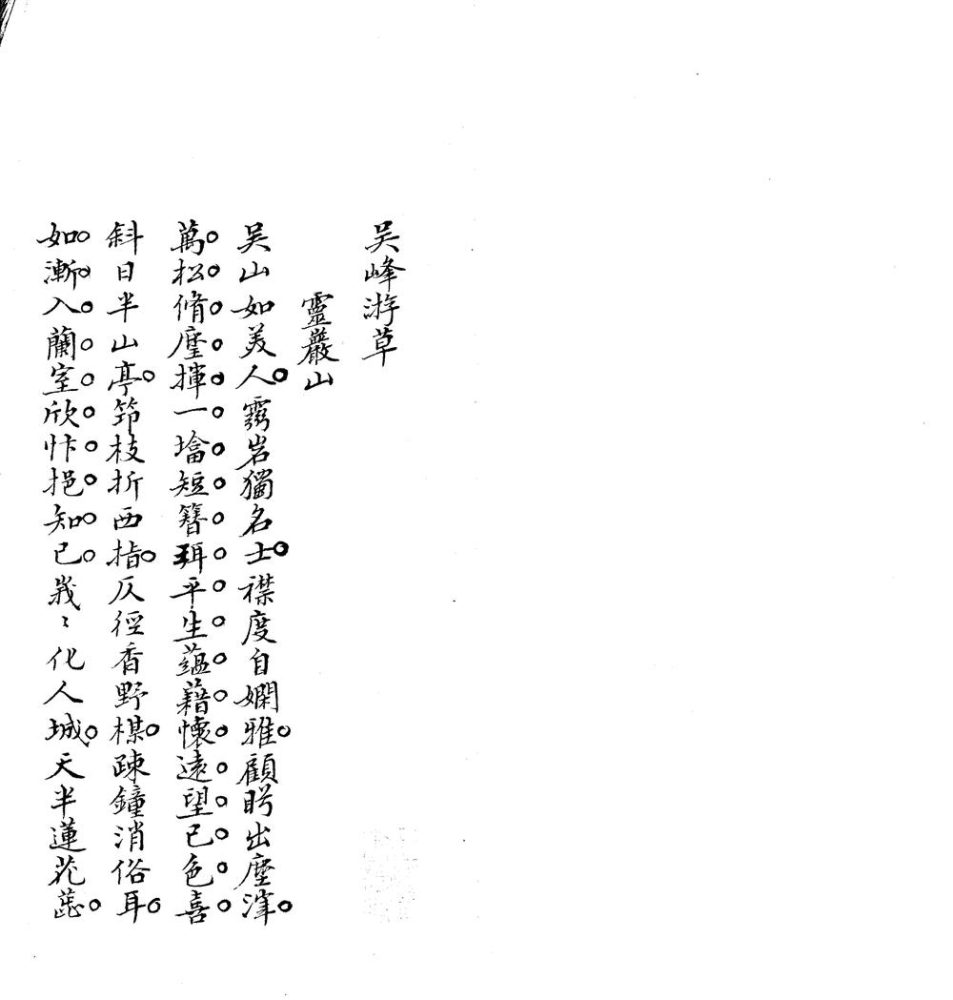 吴峰游草
靈巖山
吴山如美人靈岩獨名士襟度自嫻雅顧盻出塵滓
萬松脩麈揮一塔短簪珥平生蘊藉懷遠望已色喜
斜日半山亭筇枝折西指仄徑香野楳疎鐘消俗耳
如漸入蘭室欣忭挹知己峩〻化人城天半蓮花蕋